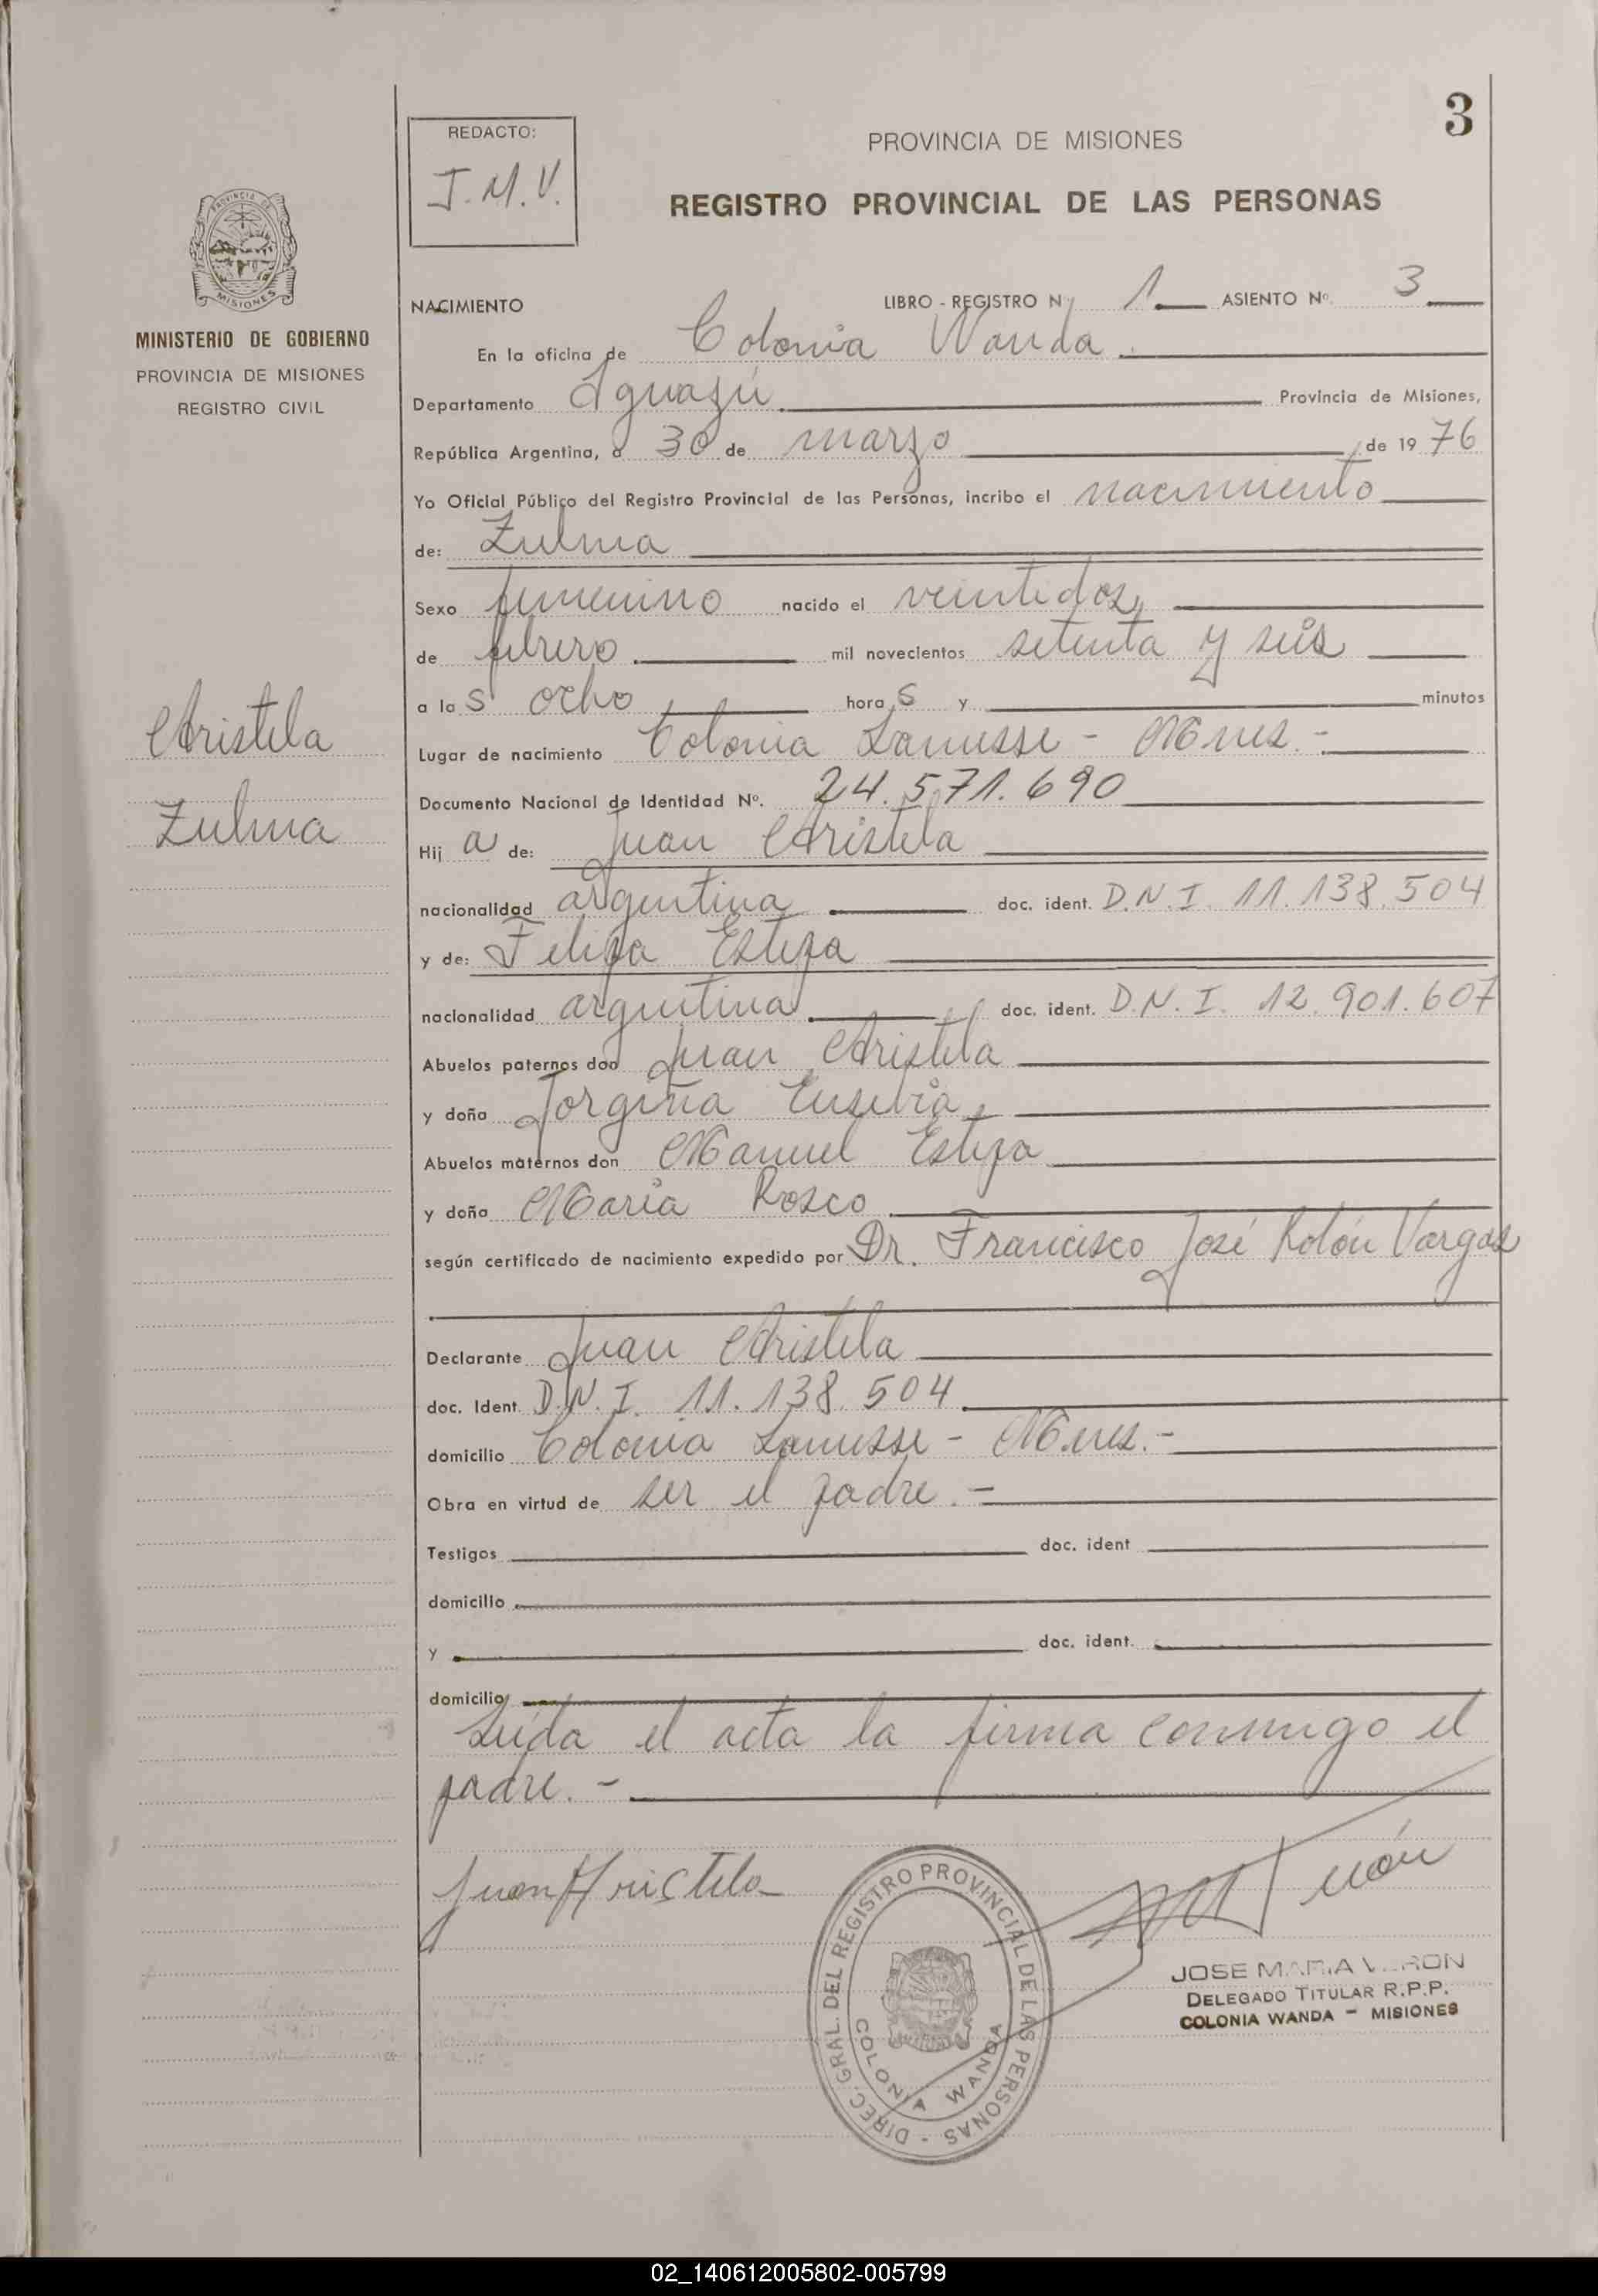 3
REDACTO:
J.M.V.
PROVINCIA DE MISIONES
REGISTRO PROVINCIAL DE LAS PERSONAS
MINISTERIO DE GOBIERNO
PROVINCIA DE MISIONES
REGISTRO CIVIL
Aristela
Zulma
NACIMIENTO LIBRO - REGISTRO Nº 1 ASIENTO Nº. 3
En la oficina de Colonia Wanda.
Departamento Iguazú Provincia de Misiones,
República Argentina, a 30 de marzo de 1976
Yo Oficial Público del Registro Provincial de las Personas, incribo el nacimiento
de: Zulma
Sexo femenino nacido el veintidos
de febrero mil novecientos setenta y seis
a las ocho horas y minutos
Lugar de nacimiento Colonia Lanusse - Mnes.-
Documento Nacional de Identidad Nº. 24.571.690
Hija de: Juan Aristela
nacionalidad argentina doc. ident. D.N.I. 11.138.504
y de: Felipa Estepa
nacionalidad argentina doc. ident. D.N.I. 12.901.607
Abuelos paternos don Juan Aristela
y doña Jorgina Eusebia
Abuelos maternos don Manuel Estepa
y doña María Rosco
según certificado de nacimiento expedido por Dr. Francisco José Rolón Vargas
Declarante Juan Aristela
doc. Ident. D.N.I. 11.138.504
domicilio Colonia Lanusse - Mnes.-
Obra en virtud de ser el padre.-
Testigos doc. ident
domicilio
y doc. ident.
domicilio
Leída el acta la firma conmigo el
padre.-
Juan Aristela
DIREC. GRAL. DEL REGISTRO PROVINCIAL DE LAS PERSONAS -
COLONIA WANDA
JOSE MARIA
DELEGADO TITULAR R.P.P.
COLONIA WANDA - MISIONES
02_140612005802-005799